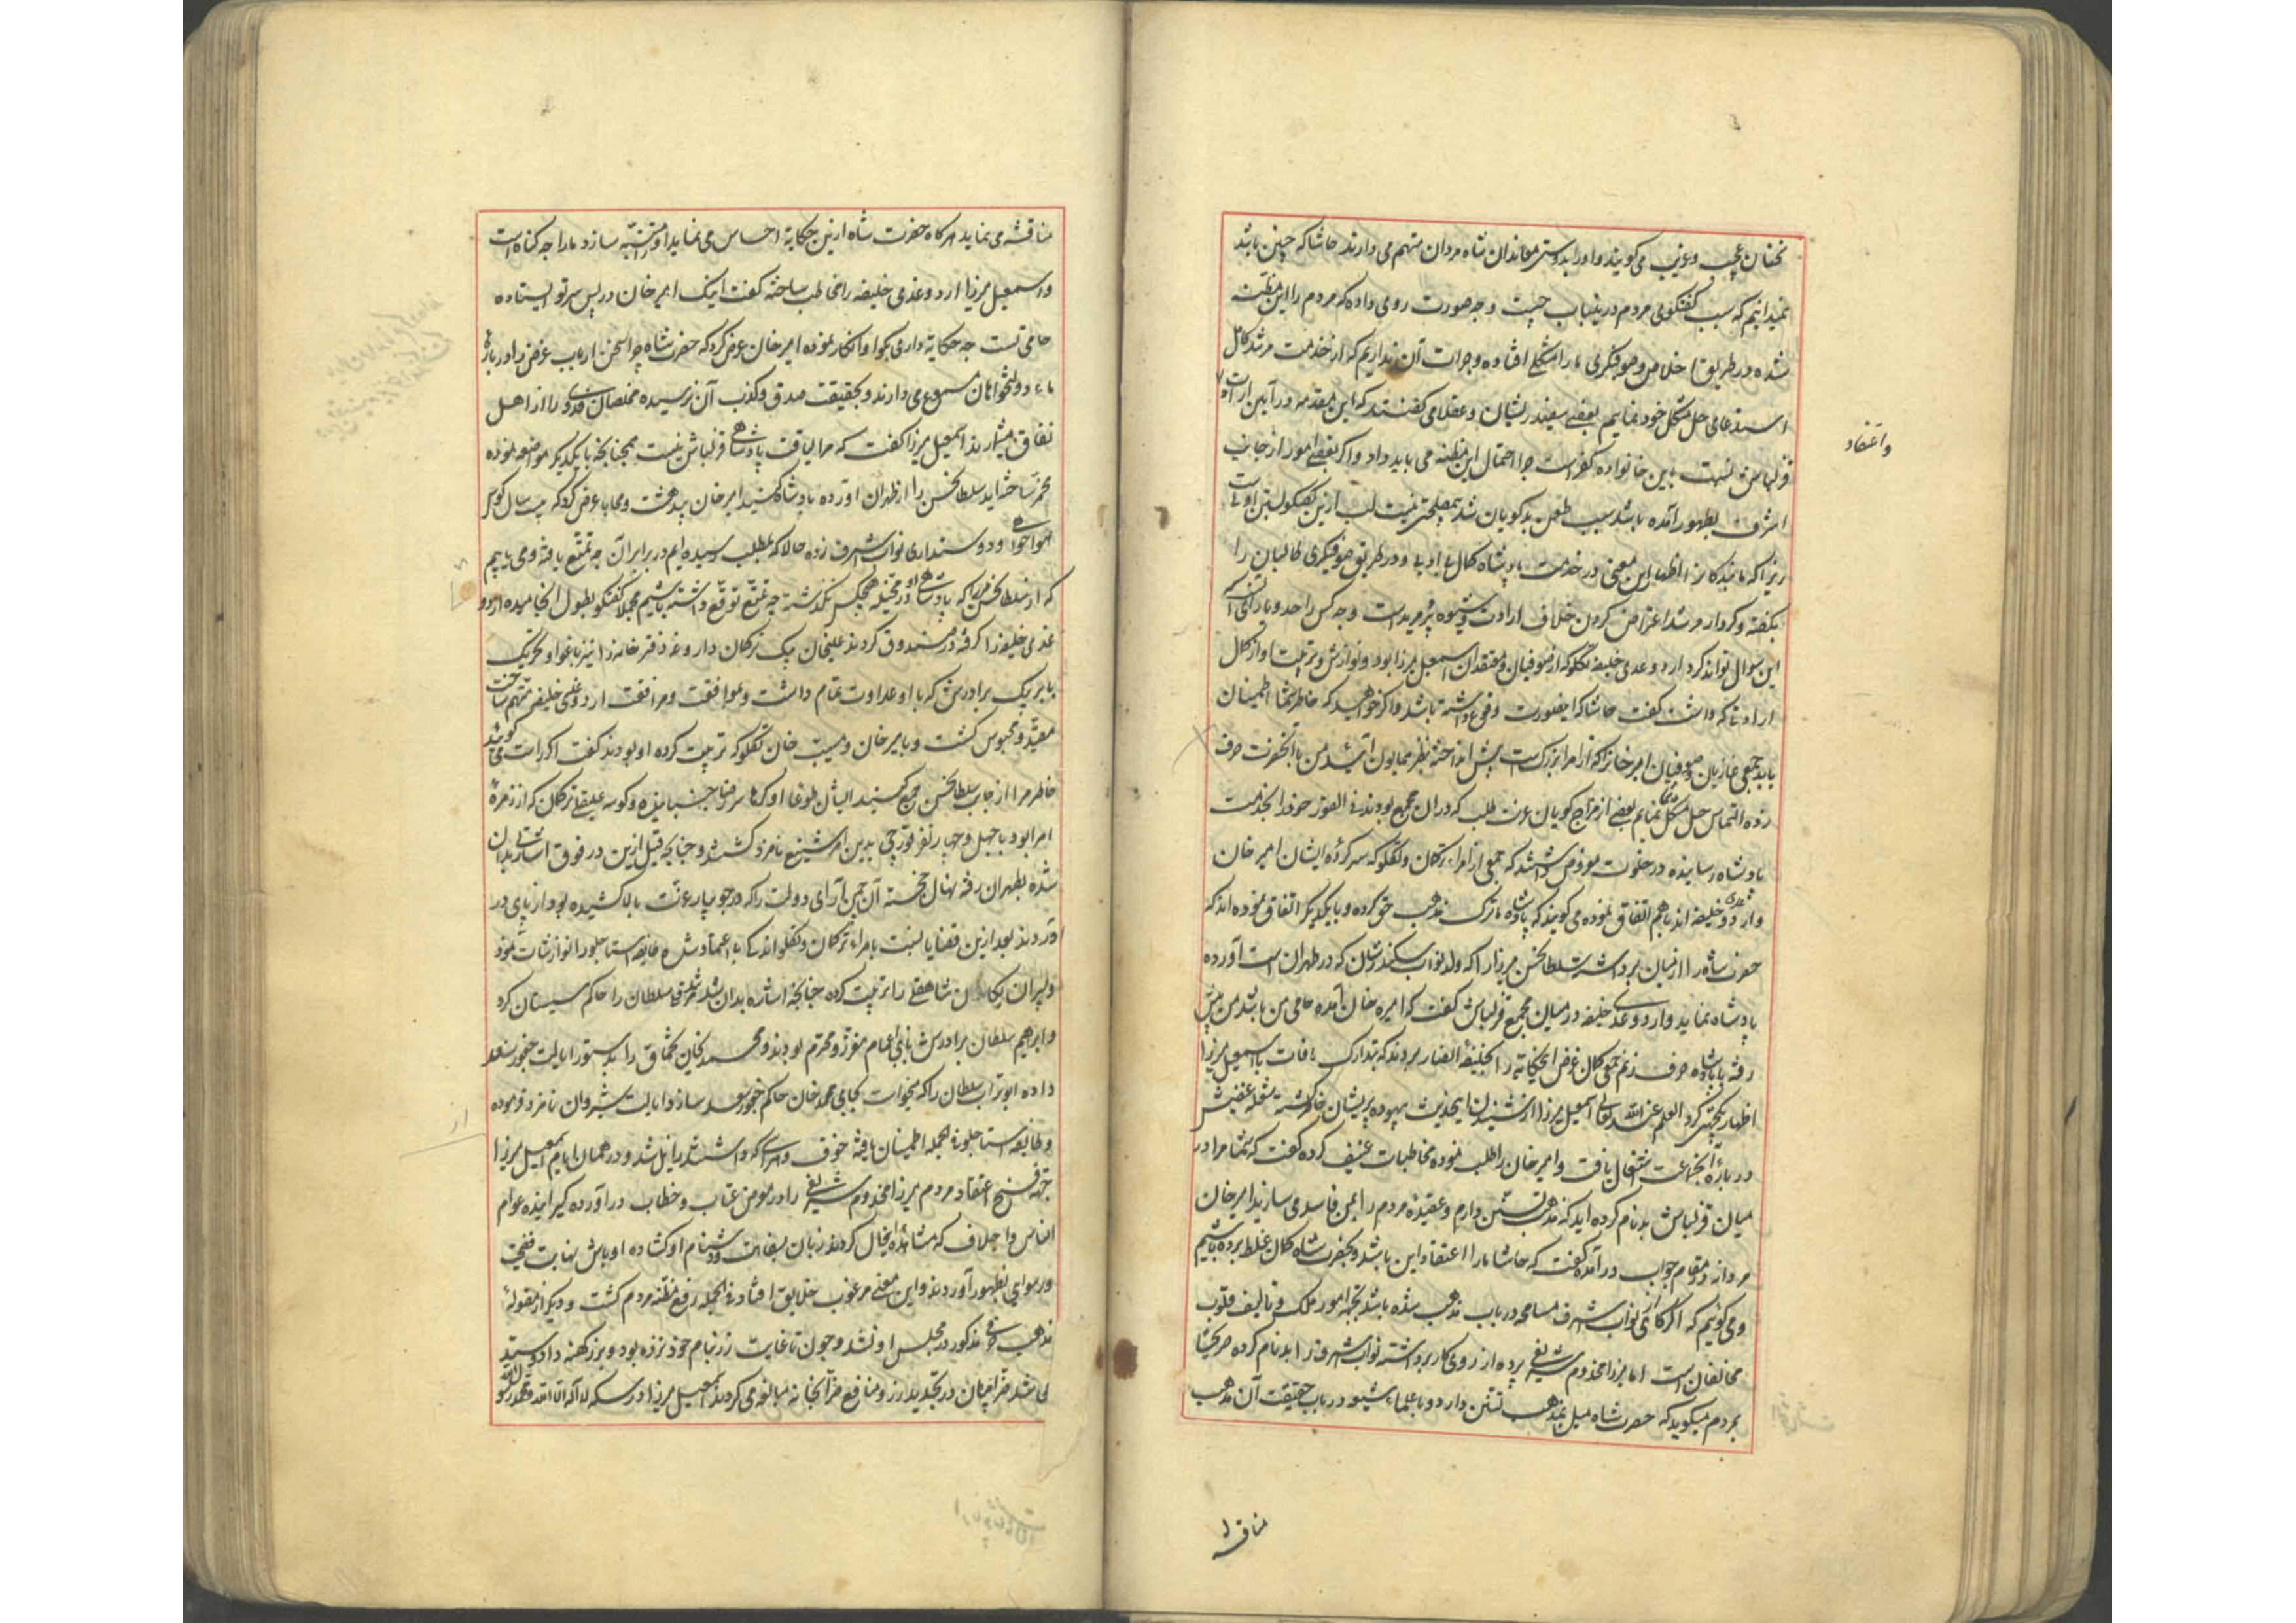 سخنان عجیب و غریب می کویند و او را بدوستی معاندان شاه مردان متهم می دارند حاشا که چنین باشد
نمیدانیم که سبب کفتکوی مردم درینباب چیست و چه صورت روی داده که مردم را این مظنه
شده در طریق اخلاص و صوفیکری ما را مشکلی افتاده و جرات آن نداریم که از خدمت مرشد کامل
استدعای حل مشکل خود نمائیم بعضی سفیدریشان و عقلا می کفتند که این مقدمه در آیین ارادت
واعتقاد
قزلباش نسبت باین خانواده کفر است چرا احتمال این مظنه می باید داد و اکر بعضی امور از جانب
اشرف بظهور آمده باشد سبب طعن بدکویان شد بمصلحتی نیست لب ازین کفتکو بستن اولی است
زیرا که ما بندکانرا اظهار این معنی در خدمت پادشاه کمال بی ادبی و در طریق صوفیکری طالبان را
بکفته و کردار مرشد اعتراض کردن خلاف ارادت و شیوه پیر مریدیست و چه کس را حد و یارای آنست که
این سوال تواند کرد اردوغدی خلیفه تکلو که از صوفیان و معتقدان اسمعیل میرزا بود و نوازش و تربیت او از کمال
ارادتی که داشت کفت حاشا که اینصورت وقوع داشته باشد و اکر خواهید که خاطر شما اطمینان
یابد جمعی غازیان و صوفیان امیر خانرا که از امرا بزرک است پیش انداخته بنظر همایون آئید من با آنحضرت حرف
زده التماس حل مشکل شما نمایم بعضی از مزاج کویان عزت طلب که در آن مجمع بودند فی الفور خود را بخدمت
پادشاه رسانیده در خلوت معروض داشتند که جمعی از امراء ترکمان و تکلو که سرکرده ایشان امیر خان
و اردوغدی خلیفه اند با هم اتفاق نموده می کویند که پادشاه ما ترک مذهب حق کرده و با یکدیکر اتفاق نموده اند که
حضرت شاه را از میان برداشته سلطان حسن میرزا را که ولد نواب سکندر شان که در طهران است آورده
پادشاه نمایند و اردوغدی خلیفه در میان مجمع قزلباش کفت که امیر خان آمده حامی من باشد من پیش
رفته با پادشاه حرف زنم جمعی کمان غرض این حکایة را بخلیفة انصار بردند که بتدارک مافات با اسمعیل میرزا
اظهار یکجهتی کرد العلم عند الله تعالی اسمعیل میرزا از شنیدن این حدیث بیهوده پریشان خاطر کشته شعله غضبش
درباره آن جماعت اشتعال یافت و امیر خان را طلب نموده مخاطبات عنیف کرده کفت که شما مرا در
میان قزلباش بدنام کرده اید که مذهب تسنن دارم و عقیده مردم را بمن فاسد می سازید امیر خان
مردانه در مقام جواب درآمده کفت که حاشا ما را اعتقاد این باشد و بحضرت شاه کمان غلط برده باشیم
و می کوئیم که اکر کاهی از نواب اشرف مسامحه در باب مذهب شده باشد بجهة امور ملک و تالیف قلوب
مخالفان است اما میرزا مخدوم شریفی پرده از روی کار برداشته نواب اشرف را بدنام کرده صریحا
بمردم میکوید که حضرت شاه میل بمذهب تسنن دارد و با علماء شیعه در باب حقیقت آن مذهب
مناقشه
مناقشه می نماید هرکاه حضرت شاه ازین حکایة احساس می نماید او را متنبه سازد ما را چه کناه است
و اسمعیل میرزا اردوغدی خلیفه را مخاطب ساخته کفت اینک امیر خان در پس سر تو ایستاده
حامی تست چه حکایة داری بکو او انکار نموده امیر خان عرض کرد که حضرت شاه چرا سخن ارباب غرض را درباره
ما دولتخواهان مسموع می دارند و بحقیقت صدق و کذب آن نرسیده مخلصان فدوی را از اهل
نفاق میشمارند اسمعیل میرزا کفت که مرا لیاقت پادشاهی قزلباش نیست همچنانچه با یکدیکر مواضعه نموده
مخمر ساخته اید سلطان حسن را از طهران آورده پادشاه کنید امیر خان بیدهشت و محابا عرض کرد که بیست سال کوس
هواخواهی و دوستداری نواب اشرف زده حالا که بمطلب رسیده ایم در برابر آن چه تمتع یافته و می یابیم
که از سلطان حسن میرزا که پادشاهی او در مخیله هیچکس نکذشته چه تمتع توقع داشته باشیم مجملا کفتکو بطول انجامیده اردو
غدی خلیفه را کرفته در صندوق کردند علیخان بیک ترکمان داروغه دفترخانه را نیز باغوا و تحریک
بابر بیک برادرش که با او عداوت تمام داشت و بموافقت و مرافقت اردوغدی خلیفه متهم ساخت
مقید و محبوس کشت و با میر خان و مسیب خان تکلو که تربیت کرده او بودند کفت اکر راست می کوئید
خاطر مرا از جانب سلطان حسن جمع کنید ایشان طوعا او کرها سر رضا جنبانیده و کوسه علیقلی ترکمان که از زمره
امرا بود با چهل و چهار نفر قورچی بدین امر شنیع نامزد کشتند و چنانچه قبل ازین در فوق اشارتی بدان
شده بطهران رفته نهال خجسته آن چمن آرای دولت را که در جویبار عزت بالا کشیده بود از پای در
آوردند بعد ازین قضایا نسبت بامراء ترکمان و تکلو اندک بی اعتماد شده طایفه استاجلو را نوازشات نمود
و پسران یکان شاهقلی را تربیت کرده چنانچه اشاره بدان شد مرشدقلی سلطان را حاکم سیستان کرد
و ابراهیم سلطان برادرش با بنی اعمام معزز و محترم بودند و محمدخان تخماق را بدستور ایالت چخور سعد
داده ابوتراب سلطان را که میخواست بجای محمد خان حاکم چخور سعد سازد ایالت شیروان نامزد فرموده
و طایفه استاجلو فی الجمله اطمینان یافته خوف و هراسی که داشتند زایل شد و در همان ایام اسمعیل میرزا
جهة فسخ اعتقاد مردم میرزا مخدوم شریفی را در معرض عتاب و خطاب درآورده کیرانیده عوام
الناس و اجلاف که مشاهده این حال کردند زبان بسفاهت و دشنام او کشاده اوباش نهایت فضیحت
و رسوایی بظهور آوردند و این معنی مرغوب خلایق افتاد فی الجمله رفع مظنه مردم کشت و دیکر از مقوله
مذهب حرفی مذکور در مجلس او نشد و چون تا غایت زر بنام خود نزده بود و بزر کهنه داد و ستد
می شد صرافان در تجدید زر و منافع ضرابخانه مبالغه می کردند اسمعیل میرزا در سکه لا اله الا الله محمد رسول الله